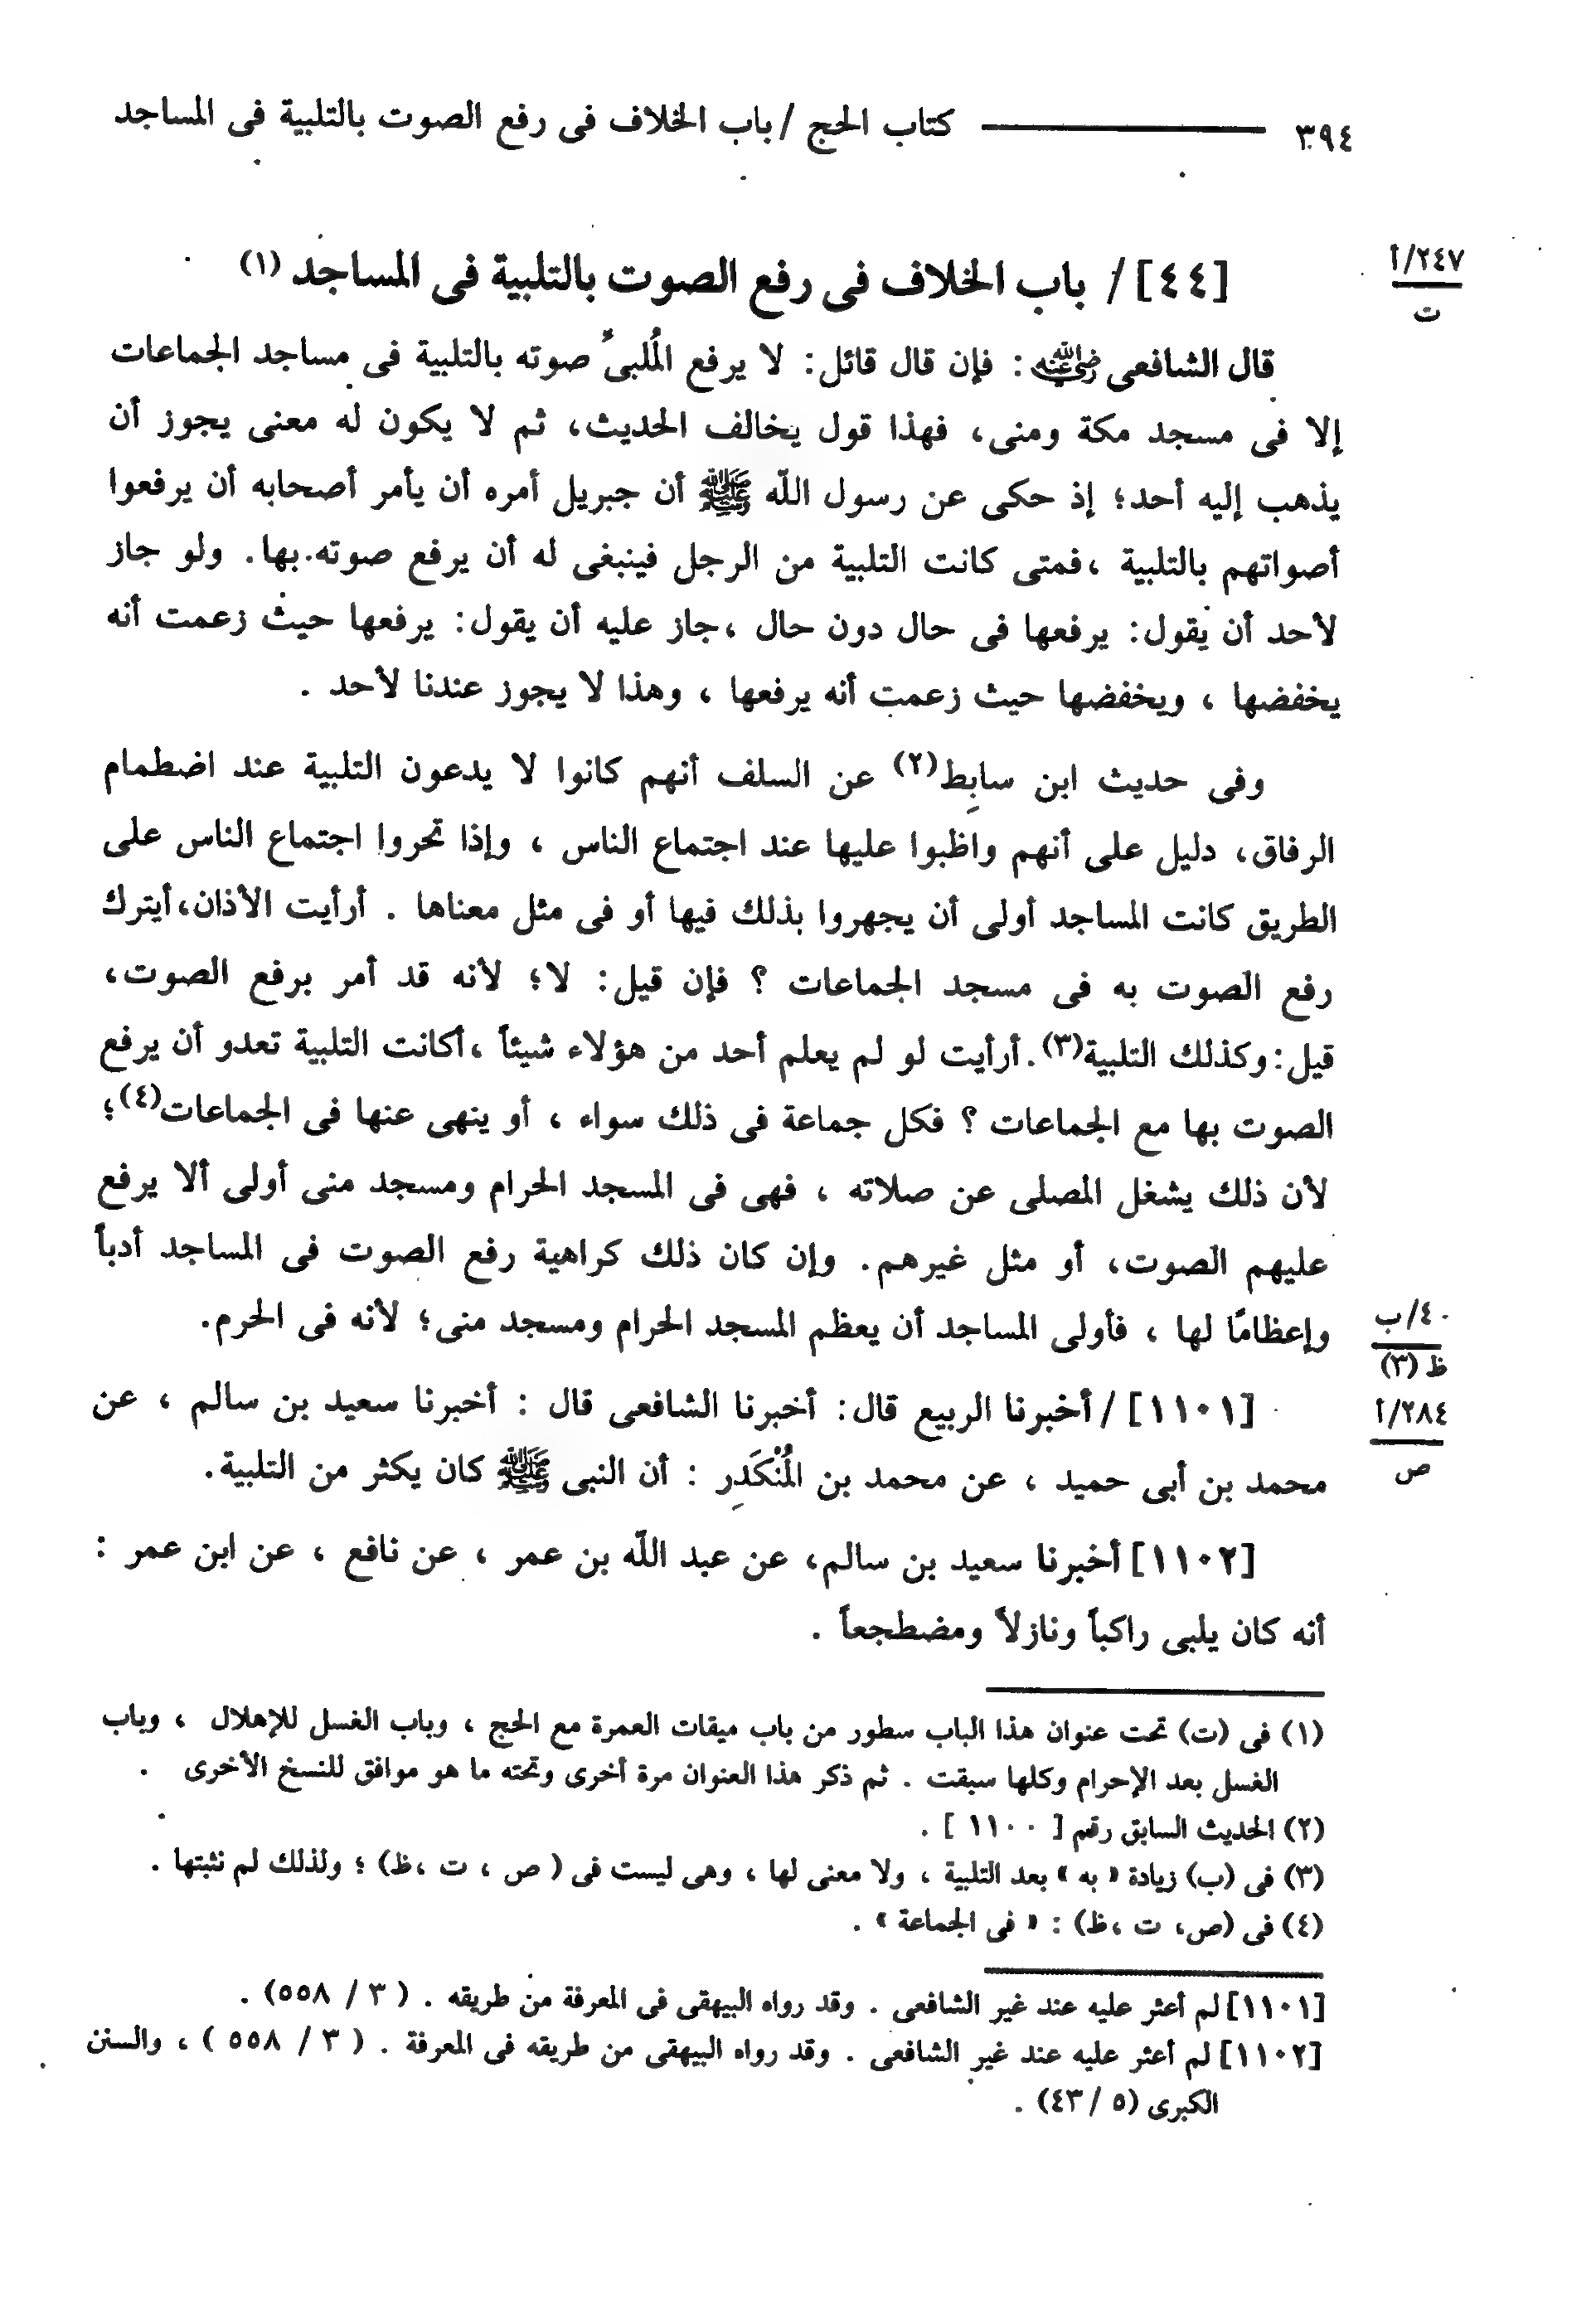 ٣٩٤ ـــــــــــــ كتاب الحج / باب الخلاف فى رفع الصوت بالتلبية فى المساجد
٢٤٧/أ
ت
[٤٤] / باب الخلاف فى رفع الصوت بالتلبية فى المساجد (١)
قال الشافعى رضي الله عنه : فإن قال قائل: لا يرفع المُلبىِّ صوته بالتلبية فى مساجد الجماعات
إلا فى مسجد مكة ومنى، فهذا قول يخالف الحديث، ثم لا يكون له معنى يجوز أن
يذهب إليه أحد؛ إذ حكى عن رسول اللّه ﷺ أن جبريل أمره أن يأمر أصحابه أن يرفعوا
أصواتهم بالتلبية ،فمتى كانت التلبية من الرجل فينبغى له أن يرفع صوته بها. ولو جاز
لأحد أن يقول: يرفعها فى حال دون حال ،جاز عليه أن يقول: يرفعها حيث زعمت أنه
يخفضها ، ويخفضها حيث زعمت أنه يرفعها ، وهذا لا يجوز عندنا لأحد .
وفى حديث ابن سابِط(٢) عن السلف أنهم كانوا لا يدعون التلبية عند اضطمام
الرفاق، دليل على أنهم واظبوا عليها عند اجتماع الناس ، وإذا تحروا اجتماع الناس على
الطريق كانت المساجد أولى أن يجهروا بذلك فيها أو فى مثل معناها . أرأيت الأذان،أيترك
رفع الصوت به فى مسجد الجماعات ؟ فإن قيل: لا؛ لأنه قد أمر برفع الصوت،
قيل:وكذلك التلبية(٣).أرأيت لو لم يعلم أحد من هؤلاء شيئاً ،أكانت التلبية تعدو أن يرفع
الصوت بها مع الجماعات ؟ فكل جماعة فى ذلك سواء ، أو ينهى عنها فى الجماعات(٤)؛
لأن ذلك يشغل المصلى عن صلاته ، فهى فى المسجد الحرام ومسجد منى أولى ألا يرفع
عليهم الصوت، أو مثل غيرهم. وإن كان ذلك كراهية رفع الصوت فى المساجد أدباً
وإعظامًا لها ، فأولى المساجد أن يعظم المسجد الحرام ومسجد منى؛ لأنه فى الحرم.
٤٠/ب
ظ (٣)
٢٨٤/أ
ص
[١١٠١] / أخبرنا الربيع قال: أخبرنا الشافعى قال : أخبرنا سعيد بن سالم ، عن
محمد بن أبى حميد ، عن محمد بن المُنْكَدِر : أن النبى ﷺ كان يكثر من التلبية.
[١١٠٢] أخبرنا سعيد بن سالم، عن عبد اللّه بن عمر ، عن نافع ، عن ابن عمر :
أنه كان يلبى راكباً ونازلاً ومضطجعاً .
(١) فى (ت) تحت عنوان هذا الباب سطور من باب ميقات العمرة مع الحج ، وباب الغسل للإهلال ، وباب
الغسل بعد الإحرام وكلها سبقت . ثم ذكر هذا العنوان مرة أخرى وتحته ما هو موافق للنسخ الأخرى .
(٢) الحديث السابق رقم [ ١١٠٠ ] .
(٣) فى (ب) زيادة « به » بعد التلبية ، ولا معنى لها ، وهى ليست فى ( ص ، ت ،ظ) ؛ ولذلك لم نثبتها .
(٤) فى (ص، ت ،ظ) : « فى الجماعة » .
[١١٠١] لم أعثر عليه عند غير الشافعى . وقد رواه البيهقى فى المعرفة من طريقه . ( ٣ / ٥٥٨) .
[١١٠٢] لم أعثر عليه عند غير الشافعى . وقد رواه البيهقى من طريقه فى المعرفة . ( ٣ / ٥٥٨ ) ، والسنن
الكبرى (٥ /٤٣) .